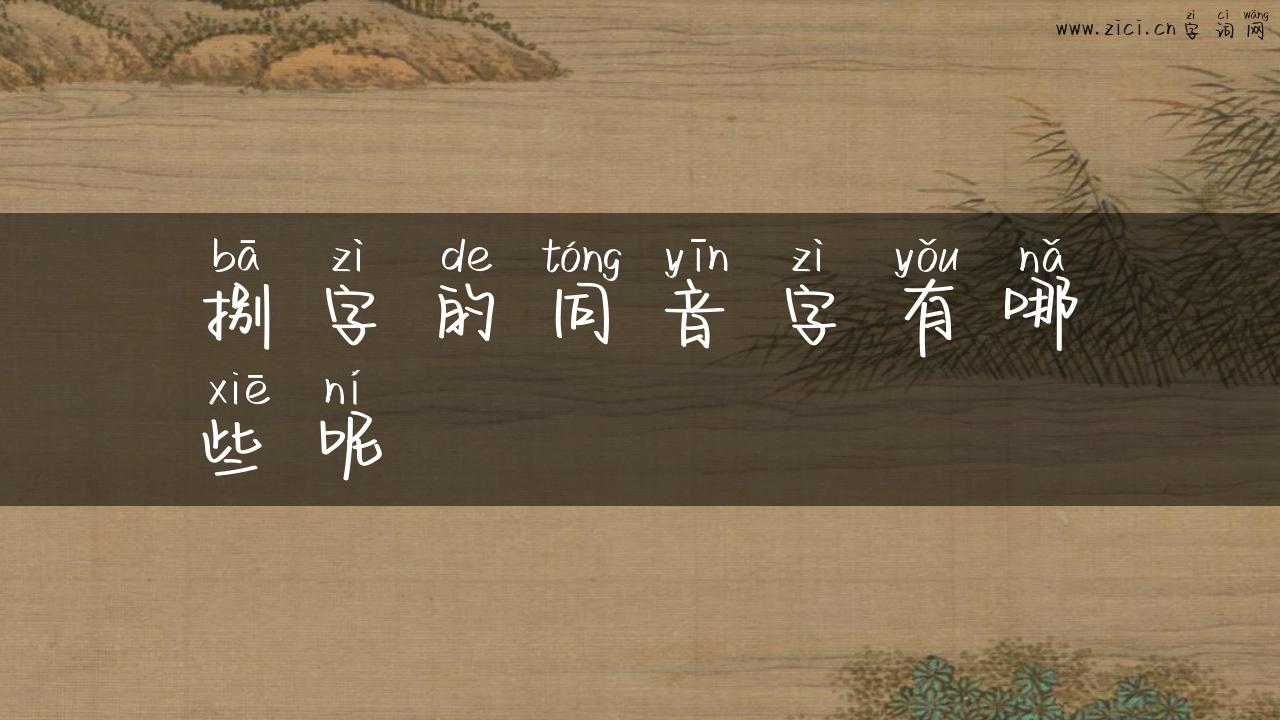 zì cí wǎng
www.zici.cn字词网
bā zì de tóng yīn zì yǒu nǎ
捌字的同音字有哪
xiē ní
些呢